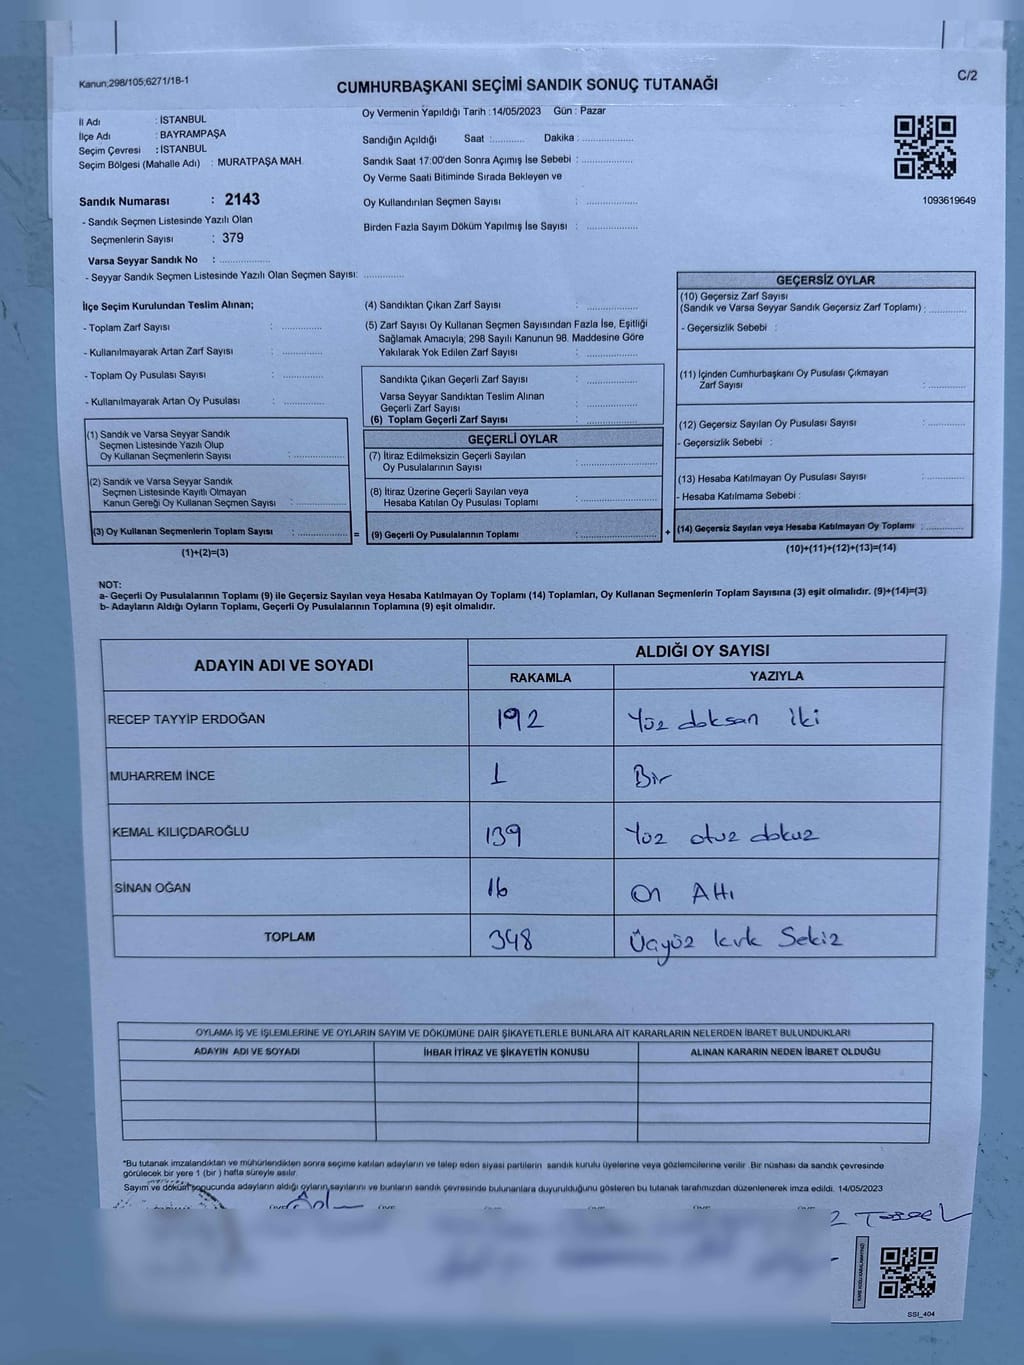 Kanun;298/105;6271/18-1
C/2
CUMHURBAŞKANI SEÇİMİ SANDIK SONUÇ TUTANAĞI
İl Adı : İSTANBUL
İlçe Adı : BAYRAMPAŞA
Seçim Çevresi : İSTANBUL
Seçim Bölgesi (Mahalle Adı) : MURATPAŞA MAH.
Sandık Numarası : 2143
- Sandık Seçmen Listesinde Yazılı Olan
Seçmenlerin Sayısı : 379
Varsa Seyyar Sandık No : ..................
- Seyyar Sandık Seçmen Listesinde Yazılı Olan Seçmen Sayısı: ..............
Oy Vermenin Yapıldığı Tarih :14/05/2023 Gün : Pazar
Sandığın Açıldığı Saat :........... Dakika : ..................
Sandık Saat 17:00'den Sonra Açımış İse Sebebi : ..................
Oy Verme Saati Bitiminde Sırada Bekleyen ve
Oy Kullandırılan Seçmen Sayısı : ..................
Birden Fazla Sayım Döküm Yapılmış İse Sayısı : ..................
1093619649
İlçe Seçim Kurulundan Teslim Alınan;
- Toplam Zarf Sayısı : ..............
- Kullanılmayarak Artan Zarf Sayısı : ..............
- Toplam Oy Pusulası Sayısı : ..............
- Kullanılmayarak Artan Oy Pusulası : ..............
(1) Sandık ve Varsa Seyyar Sandık
Seçmen Listesinde Yazılı Olup
Oy Kullanan Seçmenlerin Sayısı : ..................
(2) Sandık ve Varsa Seyyar Sandık
Seçmen Listesinde Kayıtlı Olmayan
Kanun Gereği Oy Kullanan Seçmen Sayısı : ..................
(3) Oy Kullanan Seçmenlerin Toplam Sayısı : .................. =
(1)+(2)=(3)
(4) Sandıktan Çıkan Zarf Sayısı : ..................
(5) Zarf Sayısı Oy Kullanan Seçmen Sayısından Fazla İse, Eşitliği
Sağlamak Amacıyla; 298 Sayılı Kanunun 98. Maddesine Göre
Yakılarak Yok Edilen Zarf Sayısı : ..................
Sandıkta Çıkan Geçerli Zarf Sayısı : ..................
Varsa Seyyar Sandıktan Teslim Alınan
Geçerli Zarf Sayısı : ..................
(6) Toplam Geçerli Zarf Sayısı : ..................
GEÇERLİ OYLAR
(7) İtiraz Edilmeksizin Geçerli Sayılan
Oy Pusulalarının Sayısı : ..................
(8) İtiraz Üzerine Geçerli Sayılan veya
Hesaba Katılan Oy Pusulası Toplamı : ..................
(9) Geçerli Oy Pusulalarının Toplamı : .................. +
GEÇERSİZ OYLAR
(10) Geçersiz Zarf Sayısı
(Sandık ve Varsa Seyyar Sandık Geçersiz Zarf Toplamı) : ..............
- Geçersizlik Sebebi :
(11) İçinden Cumhurbaşkanı Oy Pusulası Çıkmayan
Zarf Sayısı : ..............
(12) Geçersiz Sayılan Oy Pusulası Sayısı : ..............
- Geçersizlik Sebebi :
(13) Hesaba Katılmayan Oy Pusulası Sayısı : ..............
- Hesaba Katılmama Sebebi :
(14) Geçersiz Sayılan veya Hesaba Katılmayan Oy Toplamı : ..............
(10)+(11)+(12)+(13)=(14)
NOT:
a- Geçerli Oy Pusulalarının Toplamı (9) ile Geçersiz Sayılan veya Hesaba Katılmayan Oy Toplamı (14) Toplamları, Oy Kullanan Seçmenlerin Toplam Sayısına (3) eşit olmalıdır. (9)+(14)=(3)
b- Adayların Aldığı Oyların Toplamı, Geçerli Oy Pusulalarının Toplamına (9) eşit olmalıdır.
ADAYIN ADI VE SOYADI
ALDIĞI OY SAYISI
RAKAMLA YAZIYLA
RECEP TAYYİP ERDOĞAN 192 Yüz doksan iki
MUHARREM İNCE 1 Bir
KEMAL KILIÇDAROĞLU 139 Yüz otuz dokuz
SİNAN OĞAN 16 On Altı
TOPLAM 348 Üçyüz kırk Sekiz
OYLAMA İŞ VE İŞLEMLERİNE VE OYLARIN SAYIM VE DÖKÜMÜNE DAİR ŞİKAYETLERLE BUNLARA AİT KARARLARIN NELERDEN İBARET BULUNDUKLARI
ADAYIN ADI VE SOYADI İHBAR İTİRAZ VE ŞİKAYETİN KONUSU ALINAN KARARIN NEDEN İBARET OLDUĞU
*Bu tutanak imzalandıktan ve mühürlendikten sonra seçime katılan adayların ve talep eden siyasi partilerin sandık kurulu üyelerine veya gözlemcilerine verilir. Bir nüshası da sandık çevresinde
görülecek bir yere 1 (bir ) hafta süreyle asılır.
Sayım ve döküm sonucunda adayların aldığı oyların sayılarını ve bunların sandık çevresinde bulunanlara duyurulduğunu gösteren bu tutanak tarafımızdan düzenlenerek imza edildi. 14/05/2023
SSI_404